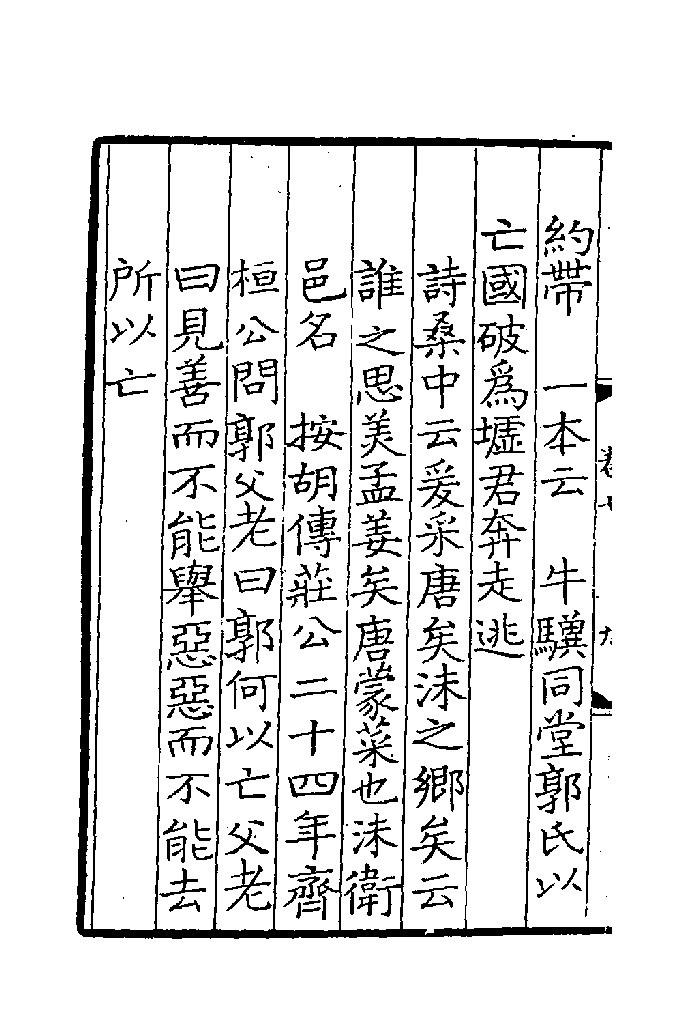 約帶　一本云　牛驥同堂郭氏以
亡國破爲墟君奔走逃
詩桑中云爰采唐矣沬之鄉矣云
誰之思美孟姜矣唐蒙菜也沬衛
邑名　按胡傳莊公二十四年齊
桓公問郭父老曰郭何以亡父老
曰見善而不能舉惡惡而不能去
所以亡